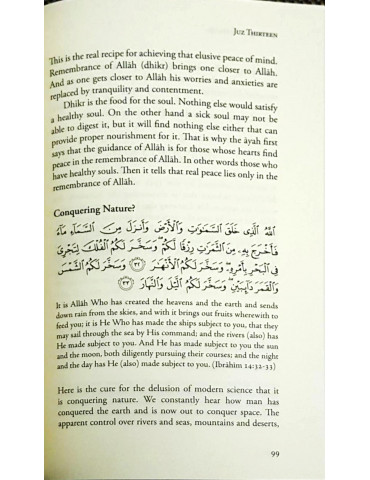 Juz Thirteen
This is the real recipe for achieving that elusive peace of mind.
Remembrance of Allāh (dhikr) brings one closer to Allāh.
And as one gets closer to Allāh his worries and anxieties are
replaced by tranquility and contentment.
Dhikr is the food for the soul. Nothing else would satisfy
a healthy soul. On the other hand a sick soul may not be
able to digest it, but it will find nothing else either that can
provide proper nourishment for it. That is why the āyah first
says that the guidance of Allāh is for those whose hearts find
peace in the remembrance of Allāh. In other words those who
have healthy souls. Then it tells that real peace lies only in the
remembrance of Allāh.
Conquering Nature?
ٱللَّهُ ٱلَّذِى خَلَقَ ٱلسَّمَـٰوَٰتِ وَٱلْأَرْضَ وَأَنزَلَ مِنَ ٱلسَّمَآءِ مَآءً
فَأَخْرَجَ بِهِۦ مِنَ ٱلثَّمَرَٰتِ رِزْقًا لَّكُمْ ۖ وَسَخَّرَ لَكُمُ ٱلْفُلْكَ لِتَجْرِىَ
فِى ٱلْبَحْرِ بِأَمْرِهِۦ ۖ وَسَخَّرَ لَكُمُ ٱلْأَنْهَـٰرَ ﴿٣٢﴾ وَسَخَّرَ لَكُمُ ٱلشَّمْسَ
وَٱلْقَمَرَ دَآئِبَيْنِ ۖ وَسَخَّرَ لَكُمُ ٱلَّيْلَ وَٱلنَّهَارَ ﴿٣٣﴾
It is Allāh Who has created the heavens and the earth and sends
down rain from the skies, and with it brings out fruits wherewith to
feed you; it is He Who has made the ships subject to you, that they
may sail through the sea by His command; and the rivers (also) has
He made subject to you. And He has made subject to you the sun
and the moon, both diligently pursuing their courses; and the night
and the day has He (also) made subject to you. (Ibrāhim 14:32-33)
Here is the cure for the delusion of modern science that it
is conquering nature. We constantly hear how man has
conquered the earth and is now out to conquer space. The
apparent control over rivers and seas, mountains and deserts,
99